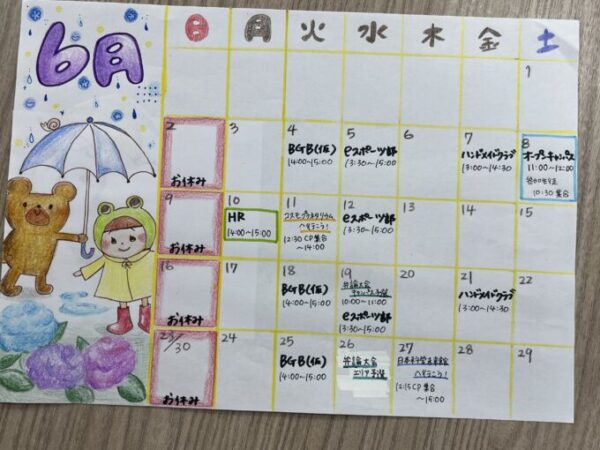 6月
日 月 火 水 木 金 土
1
2
お休み
3
4
BGB(仮)
14:00~15:00
5
eスポーツ部
13:30~15:00
6
7
ハンドメイドクラブ
13:00~14:30
8
オープンキャンパス
11:00~12:00
10:30 集合
9
お休み
10
HR
14:00~15:00
11
コスモプラネタリウム
へ行こう!
12:30 CP集合
~14:00
12
eスポーツ部
13:30~15:00
13
14
15
16
お休み
17
18
BGB(仮)
14:00~15:00
19
弁論大会
キャンパス予選
10:00~11:00
eスポーツ部
13:30~15:00
20
21
ハンドメイドクラブ
13:00~14:30
22
23/30
お休み
24
25
BGB(仮)
14:00~15:00
26
弁論大会
エリア予選
27
へ行こう!
12:15 CP集合
~15:00
28
29